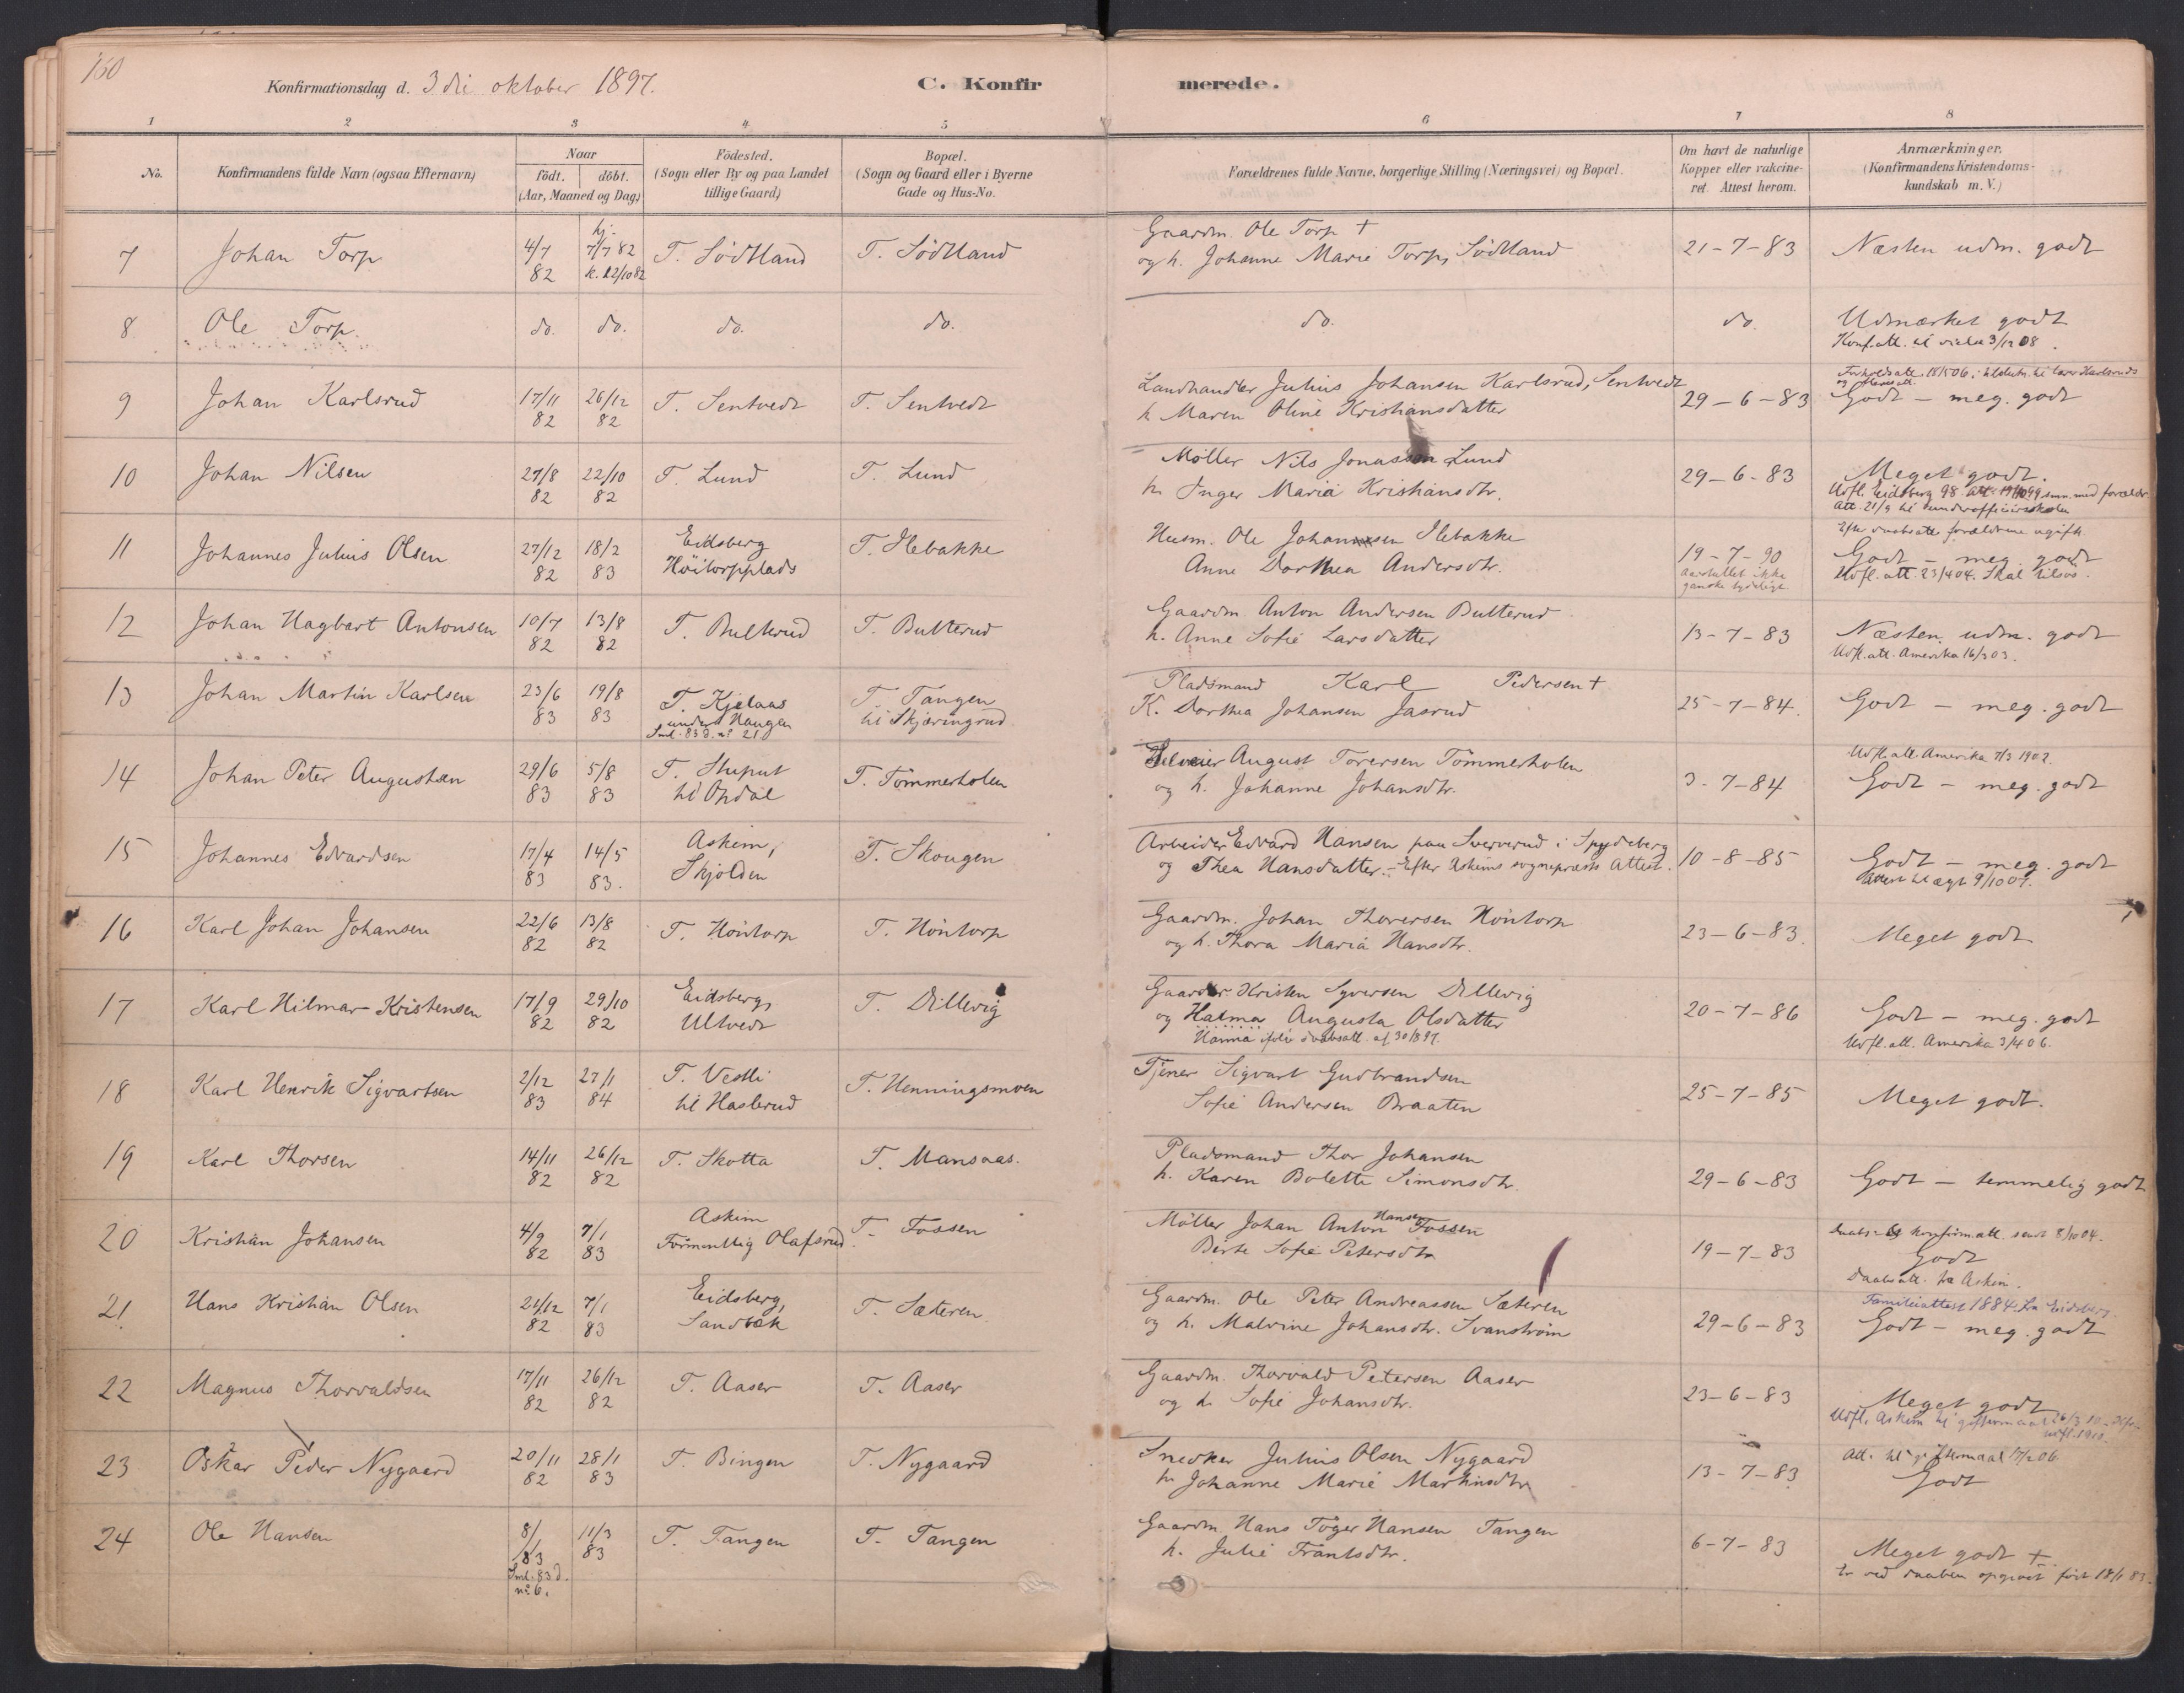 160
Konfirmationsdag d. 3die oktober 1897.
C. Konfirmerede.
1 2 3 4 5 6 7 8
No.
Konfirmandens fulde Navn (ogsaa Efternavn)
Naar
födt. döbt.
(Aar, Maaned og Dag)
Födested.
(Sogn eller By og paa Landet
tillige Gaard)
Bopæl.
(Sogn og Gaard eller i Byerne
Gade og Hus-No.
Forældrenes fulde Navne, borgerlige Stilling (Næringsvei) og Bopæl.
Om havt de naturlige
Kopper eller vakcine-
ret. Attest herom.
Anmærkninger.
(Konfirmandens Kristendoms-
kundskab m. V.)
7 Johan Torp 4/7 82 hj. 7/7 82 k. 22/10 82 T. Södtland T. Södtland
Gaardm. Ole Torp †
og h. Johanne Marie Torp, Södtland
21-7-83 Næsten udm. godt
8 Ole Torp do. do. do. do. do. do. Udmærket godt
Konf.att. til 3/12 08.
9 Johan Karlsrud 17/11 82 26/12 82 T. Sentvedt T. Sentvedt
Landhandler Julius Johansen Karlsrud, Sentvedt
h. Maren Oline Kristiansdatter
29-6-83 Godt - meg. godt
10 Johan Nilsen 27/8 82 22/10 82 T. Lund T. Lund
Møller Nils Jonassen Lund
h. Inger Maria Kristiansdtr.
29-6-83 Meget godt.
Udfl. Eidsberg 98. med forældr.
Att. 21/9 til underofficersskolen
11 Johannes Julius Olsen 27/12 82 18/2 83 Eidsberg Höitorpplads T. Slebakke
Husm. Ole Johannsen Slebakke
Anne Dorthea Andersdtr.
19-7-90
aarstallet ikke
ganske tydelige
Efter daabsatt. forældrene ugifte
Godt - meg. godt
Udfl. att. 23/4 04. Skal tilsøs.
12 Johan Hagbart Antonsen 10/7 82 13/8 82 T. Bulterud T. Bulterud
Gaardm. Anton Andersen Bulterud
h. Anne Sofie Larsdatter
13-7-83 Næsten udm. godt
Udfl. att. Amerika 16/3 03.
13 Johan Martin Karlsen 23/6 83 19/8 83 T. Kjelaas under Haugen
Sml. 83 d. no 21
T. Tangen til Skjæringrud
Pladsmand Karl Pedersen †
K. Dorthea Johansen Jasrud
25-7-84. Godt - meg. godt
14 Johan Peter Augustsen 29/6 83 5/8 83 T. Stuput til Opdal T. Tömmerholen
August Torersen Tömmerholen
og h. Johanne Johansdtr.
3-7-84
Udfl. att. Amerika 7/3 1902.
Godt - meg. godt
15 Johannes Edvardsen 17/4 83 14/5 83. Askim, Skjolden T. Skougen
Arbeider Edvard Hansen paa Sververud i Spydeberg
og Thea Hansdatter. - Efter Askims sognepræsts Attest.
10-8-85 Godt - meg. godt
Attest til ægt. 9/10 07.
16 Karl Johan Johansen 22/6 82 13/8 82 T. Höntorp T. Höntorp
Gaardm. Johan Thoversen Höntorp
og h. Thora Maria Hansdtr.
23-6-83. Meget godt
17 Karl Hilmar Kristensen 17/9 82 29/10 82 Eidsberg, Ultvedt T. Dillevig
Kristen Syversen Dillevig
og Halma Augusta Olsdatter
Hanna ifölge daabsatt. af 30/8 97.
20-7-86 Godt - meg. godt
Udfl. att. Amerika 3/4 06.
18 Karl Henrik Sigvartsen 2/12 83 27/1 84 T. Vestli til Haslerud T. Henningsmoen
Tjener Sigvart Gudbrandsen
Sofie Andersen Braaten
25-7-85 Meget godt.
19 Karl Thorsen 14/11 82 26/12 82 T. Skotta T. Mansaas.
Pladsmand Thor Johansen
h. Karen Bolette Simonsdtr.
29-6-83 Godt - temmelig godt
20 Kristian Johansen 4/9 82 7/1 83 Askim Olafsrud T. Fossen
Möller Johan Anton Hansen Fossen
Berte Sofie Petersdtr
19-7-83
Daabs- og konfirm.att. sendt 8/10 04.
Godt
Daabsatt. fra Askim.
21 Hans Kristian Olsen 21/12 82 7/1 83 Eidsberg, Sandbæk T. Sæteren
Gaardm. Ole Peter Andreassen Sæteren
og h. Malvine Johansdtr. Svanström
29-6-83
Familieattest 1884 fra Eidsberg.
Godt - meg. godt
22 Magnus Thorvaldsen 17/11 82 26/12 82 T. Aaser T. Aaser
Gaardm. Thorvald Petersen Aaser
og h. Sofie Johansdtr.
23-6-83 Meget godt
Udfl. Askim til giftermaal 26/3 10.
23 Oskar Peder Nygaard 20/11 82 28/1 83 T. Bingen T. Nygaard
Snedker Julius Olsen Nygaard
h. Johanne Marie Martinsdtr
13-7-83
Att. til giftermaal 17/2 06
Godt
24 Ole Hansen 8/1 83 11/3 83 T. Tangen T. Tangen
Sml. 83 d. no 6.
Gaardm. Hans Töger Hansen Tangen
h. Julie Frantsdtr.
6-7-83 Meget godt †
Er ved daaben opgivet født 18/1 83.